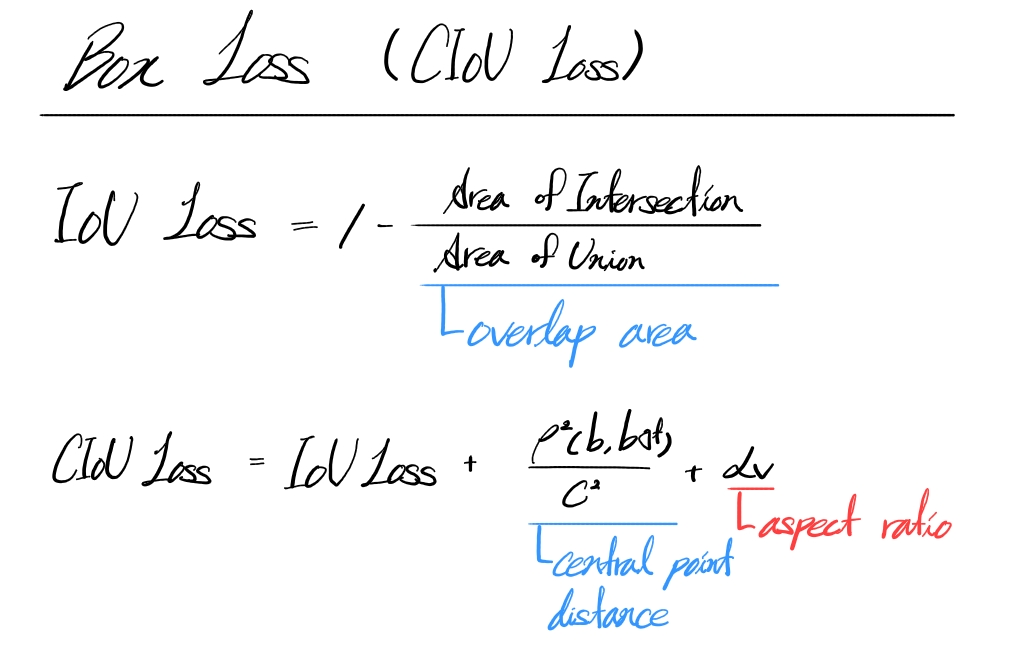 Box Loss (CIoU Loss)
IoU Loss = 1 - Area of Intersection / Area of Union
overlap area
CIoU Loss = IoU Loss + ρ²(b, bgt) / C² + αv
aspect ratio
central point
distance